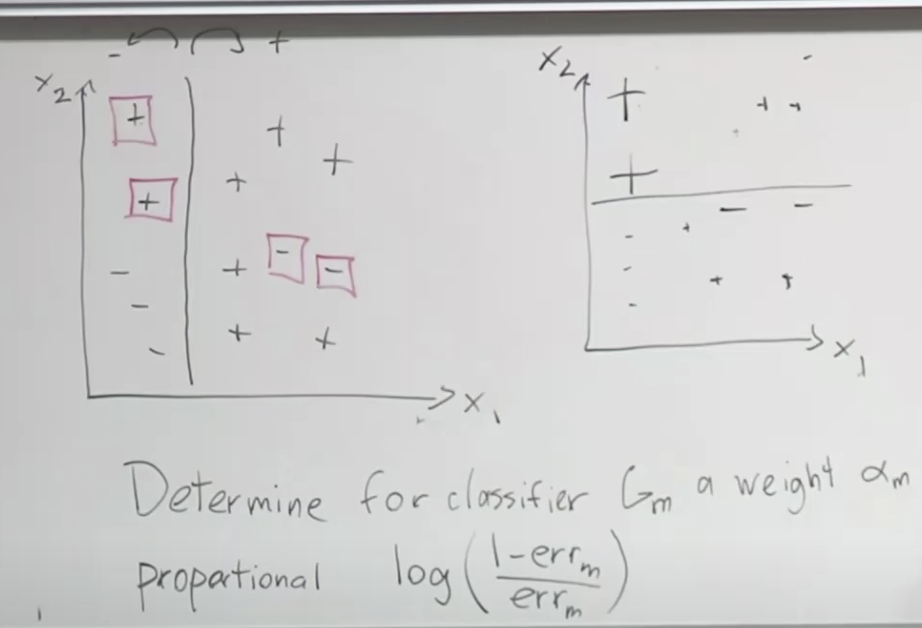 - +
x₂
+ + + + + - - - + - - - + +
x₁
x₂
-
+ + +
+
- -
- +
-
+ +
-
x₁
Determine for classifier Gₘ a weight αₘ
propotional log(1-errₘ/errₘ)